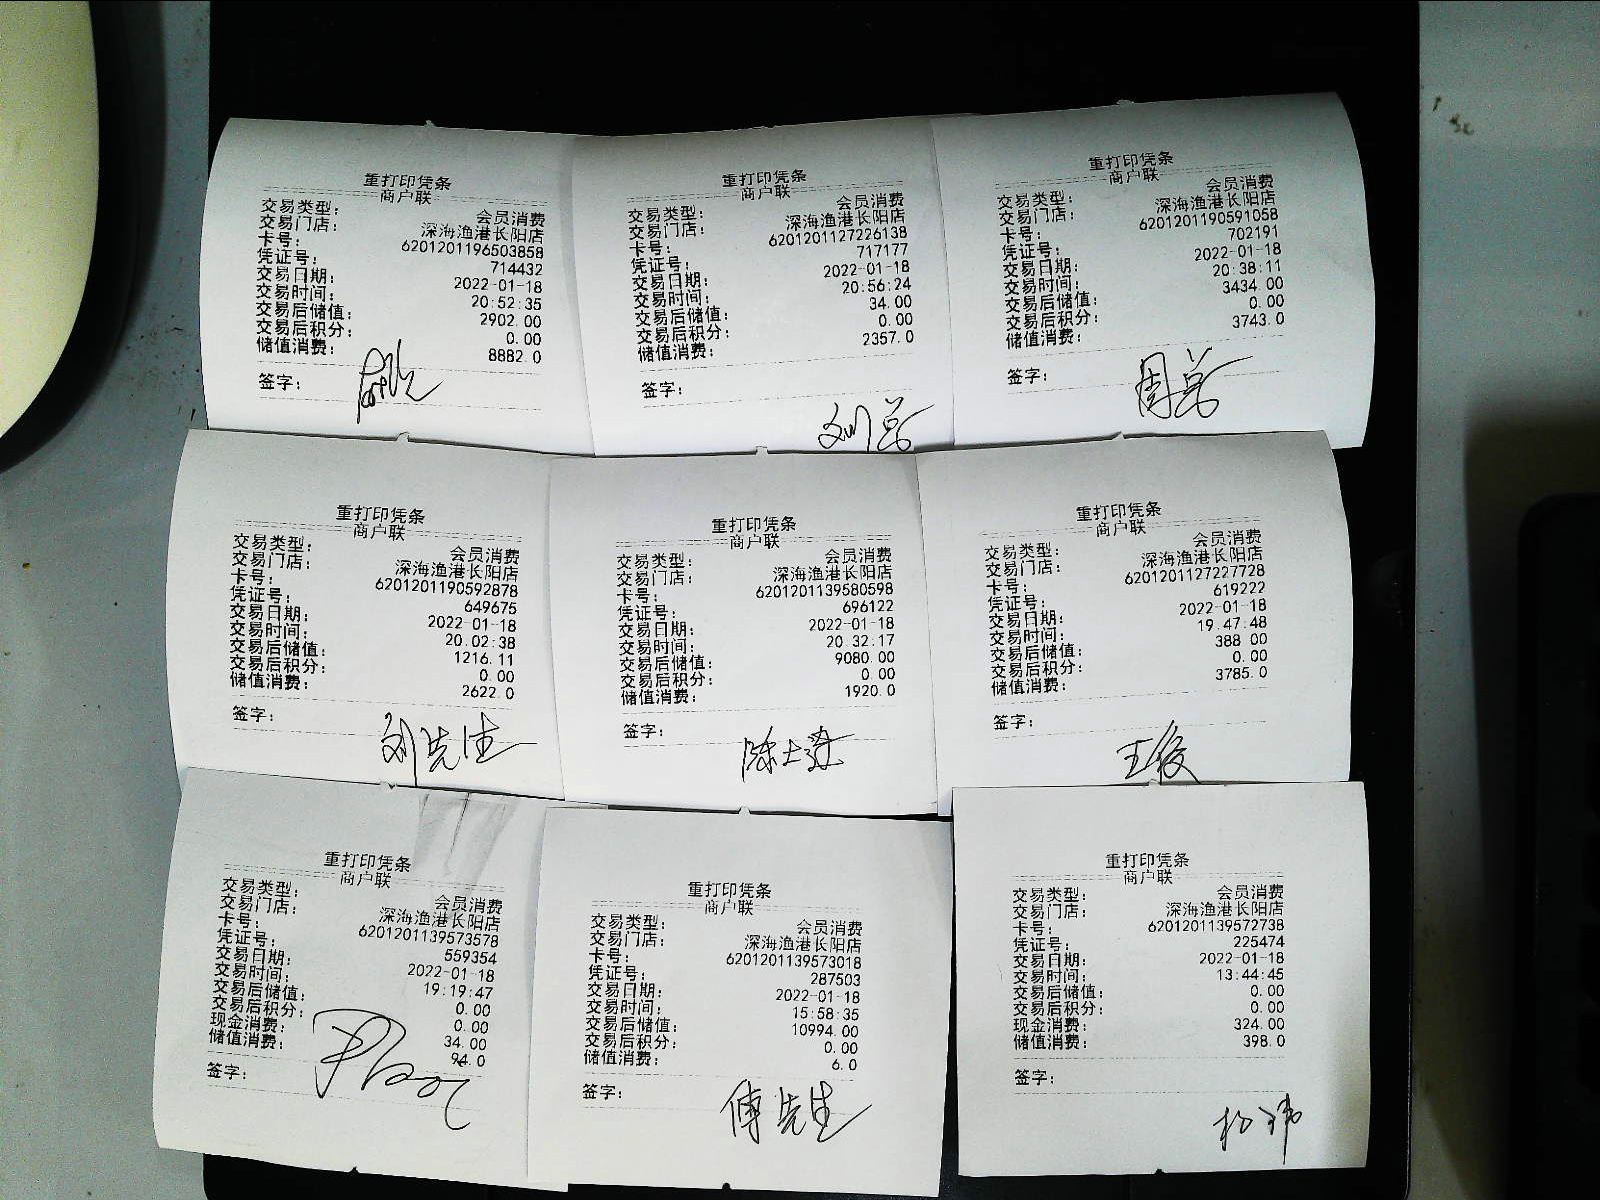 重打印凭条
商户联
交易类型： 会员消费
交易门店： 深海渔港长阳店
卡号： 6201201196503858
凭证号： 714432
交易日期： 2022-01-18
交易时间： 20:52:35
交易后储值： 2902.00
交易后积分： 0.00
储值消费： 8882.0
签字：
重打印凭条
商户联
交易类型： 会员消费
交易门店： 深海渔港长阳店
卡号： 6201201127226138
凭证号： 717177
交易日期： 2022-01-18
交易时间： 20:56:24
交易后储值： 34.00
交易后积分： 0.00
储值消费： 2357.0
签字： 刘总
重打印凭条
商户联
交易类型： 会员消费
交易门店： 深海渔港长阳店
卡号： 6201201190591058
凭证号： 702191
交易日期： 2022-01-18
交易时间： 20:38:11
交易后储值： 3434.00
交易后积分： 0.00
储值消费： 3743.0
签字： 周总
重打印凭条
商户联
交易类型： 会员消费
交易门店： 深海渔港长阳店
卡号： 6201201190592878
凭证号： 649675
交易日期： 2022-01-18
交易时间： 20:02:38
交易后储值： 1216.11
交易后积分： 0.00
储值消费： 2622.0
签字： 刘先生
重打印凭条
商户联
交易类型： 会员消费
交易门店： 深海渔港长阳店
卡号： 6201201139580598
凭证号： 696122
交易日期： 2022-01-18
交易时间： 20:32:17
交易后储值： 9080.00
交易后积分： 0.00
储值消费： 1920.0
签字：
重打印凭条
商户联
交易类型： 会员消费
交易门店： 深海渔港长阳店
卡号： 6201201127227728
凭证号： 619222
交易日期： 2022-01-18
交易时间： 19:47:48
交易后储值： 388.00
交易后积分： 0.00
储值消费： 3785.0
签字： 王俊
重打印凭条
商户联
交易类型： 会员消费
交易门店： 深海渔港长阳店
卡号： 6201201139573578
凭证号： 559354
交易日期： 2022-01-18
交易时间： 19:19:47
交易后储值： 0.00
交易后积分： 0.00
现金消费： 34.00
储值消费： 94.0
签字：
重打印凭条
商户联
交易类型： 会员消费
交易门店： 深海渔港长阳店
卡号： 6201201139573018
凭证号： 287503
交易日期： 2022-01-18
交易时间： 15:58:35
交易后储值： 10994.00
交易后积分： 0.00
储值消费： 6.0
签字： 傅先生
重打印凭条
商户联
交易类型： 会员消费
交易门店： 深海渔港长阳店
卡号： 6201201139572738
凭证号： 225474
交易日期： 2022-01-18
交易时间： 13:44:45
交易后储值： 0.00
交易后积分： 0.00
现金消费： 324.00
储值消费： 398.0
签字：